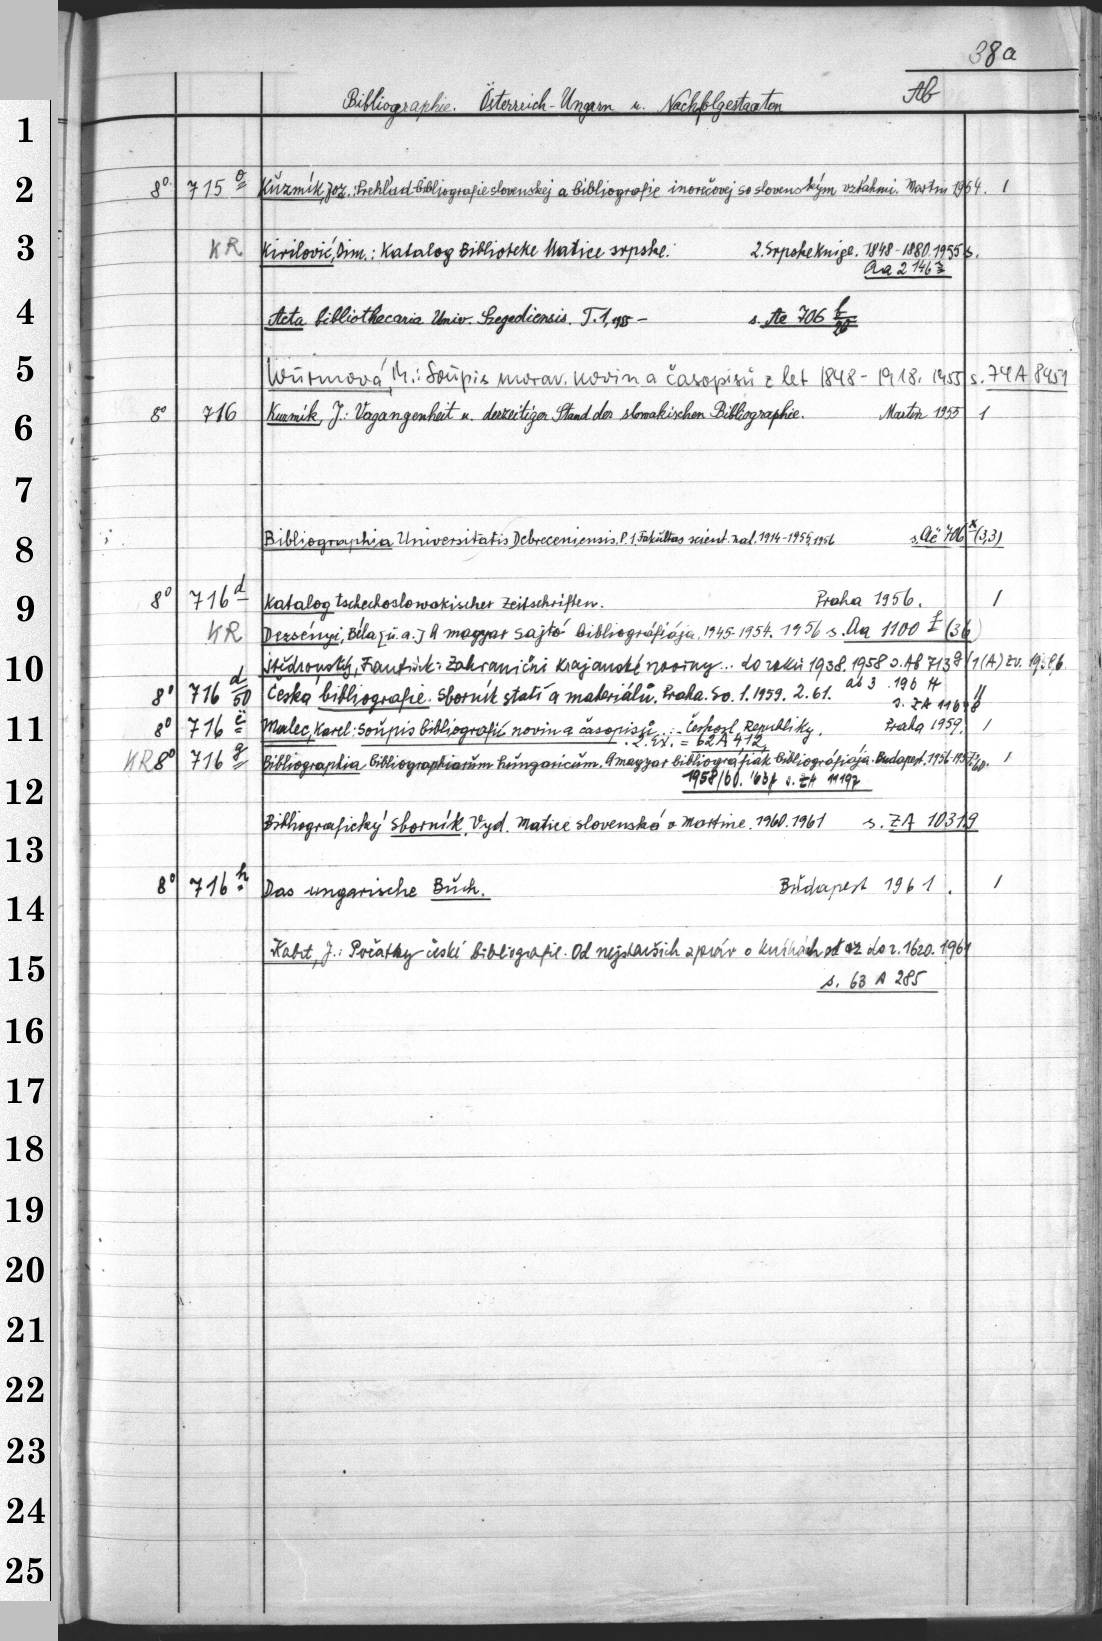 38a
Ab
Bibliographie. Österreich-Ungarn u. Nachfolgestaaten
1
2 8° 715 o Kuzmík, Joz.: Prehľad bibliografie slovenskej a bibliografie inorečovej so slovenskými vzťahmi. Martin 1954. 1
3 KR Kirilović, Dim.: Katalog Biblioteke Matice srpske. 2. Srpske knige. 1848-1880. 1955 s.
Aa 2146
4 Acta bibliothecaria Univ. Szegediensis. T.1, 1955- s. Ae 706 f/20
5 Wurmová, M.: Soupis morav. novin a časopisů z let 1848-1918. 1955 s. 74 A 8951
6 8° 716 Kuzmík, J.: Vagangenheit u. derzeitiger Stand der slowakischen Bibliographie. Martin 1955 1
7
8 Bibliographia Universitatis Debreceniensis. P.1. Fakultas scient. nat. 1914-1955. 1956 s. Ae 706 x (3,3)
9 8° 716 d Katalog tschechoslowakischer Zeitschriften. Praha 1956. 1
KR Dezsényi, Béla [u.a.] A magyar sajtó bibliográfiája. 1945-1954. 1956 s. Aa 1100 I (36)
10 Štědronský, František: Zahraniční krajanské noviny... do roku 1938. 1958 s. Ab 713 g 1(A) zv.
8° 716 d/50 Česka bibliografie. Sborník statí a materiálů. Praha. So. 1.1959. 2.61. ab 3. 1964
s. ZA 11698 "
11 8° 716 e Malec, Karel: Soupis bibliografií novin a časopisů... Českosl. Republiky. Praha 1959. 1
2. Ex. = 62 A 412
KR 8° 716 g Bibliographia bibliographiarum hungaricum. A magyar bibliográfiák bibliográfiája. Budapest. 1956-1957/60. 1
12 1958/60. '63 s. ZA 11197
13 Bibliografický sborník. Vyd. Matice slovenská v Martine. 1960. 1961 s. ZA 10319
14 8° 716 h Das ungarische Buch. Budapest 1961. 1
15 Kábrt, J.: Počátky české bibliografie. Od nejstarších zpráv o knihách až do r. 1620. 1961
s. 63 A 285
16
17
18
19
20
21
22
23
24
25